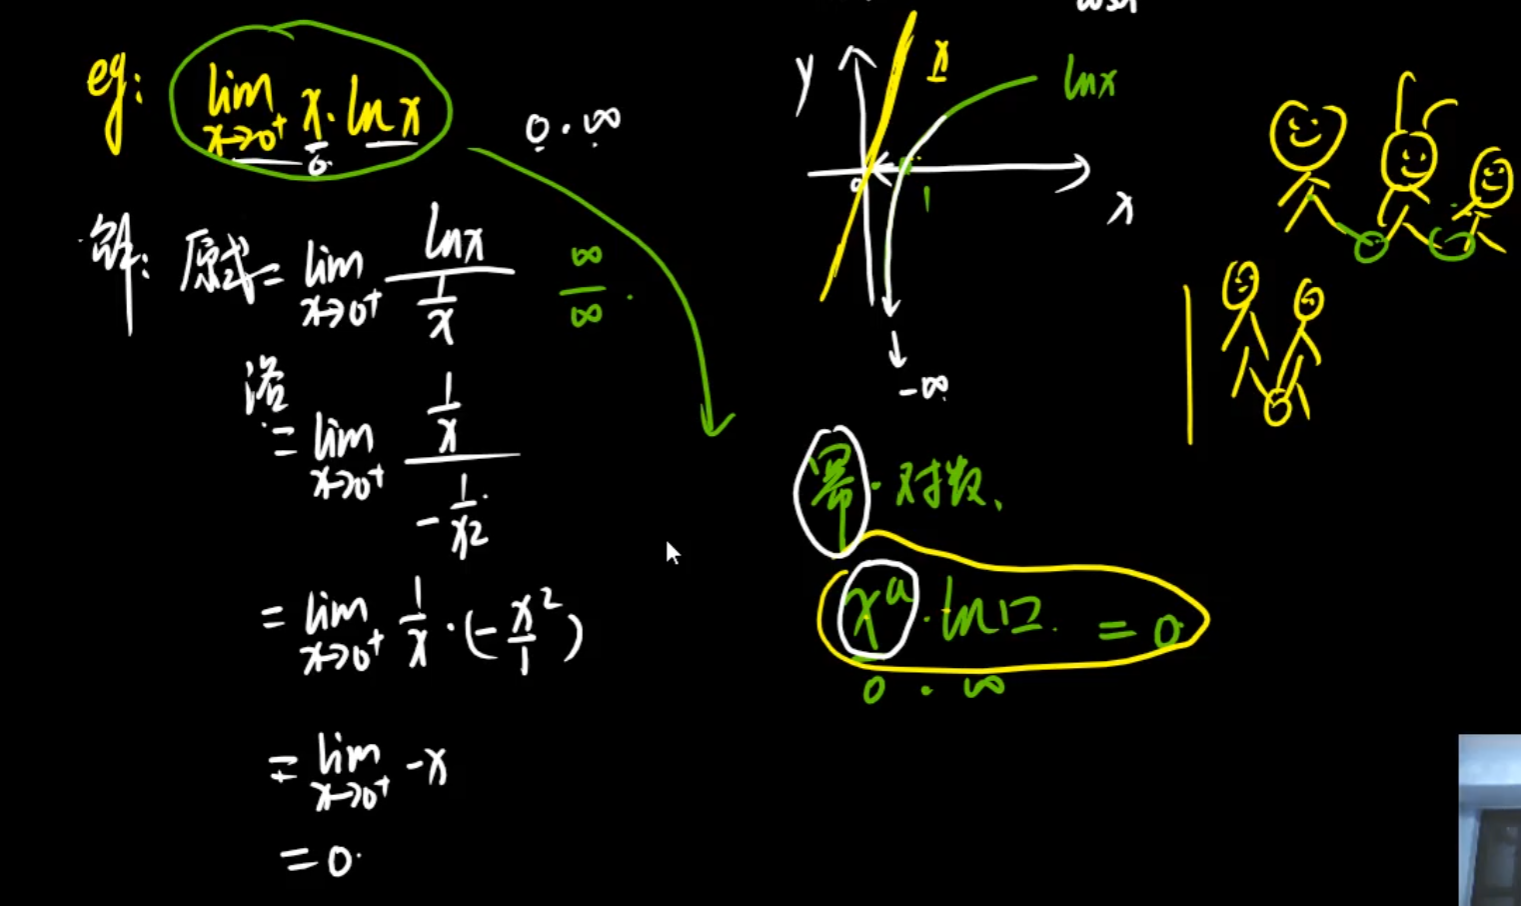 eg: lim x→0⁺ x · ln x
0
0 · ∞
解: 原式 = lim x→0⁺ lnx / (1/x)
∞/∞
洛
= lim x→0⁺ (1/x) / (-1/x²)
= lim x→0⁺ 1/x · (-x²/1)
= lim x→0⁺ -x
= 0
y
x
lnx
0
1
x
-∞
幂 · 对数、
xᵃ · ln口 = 0
0 · ∞